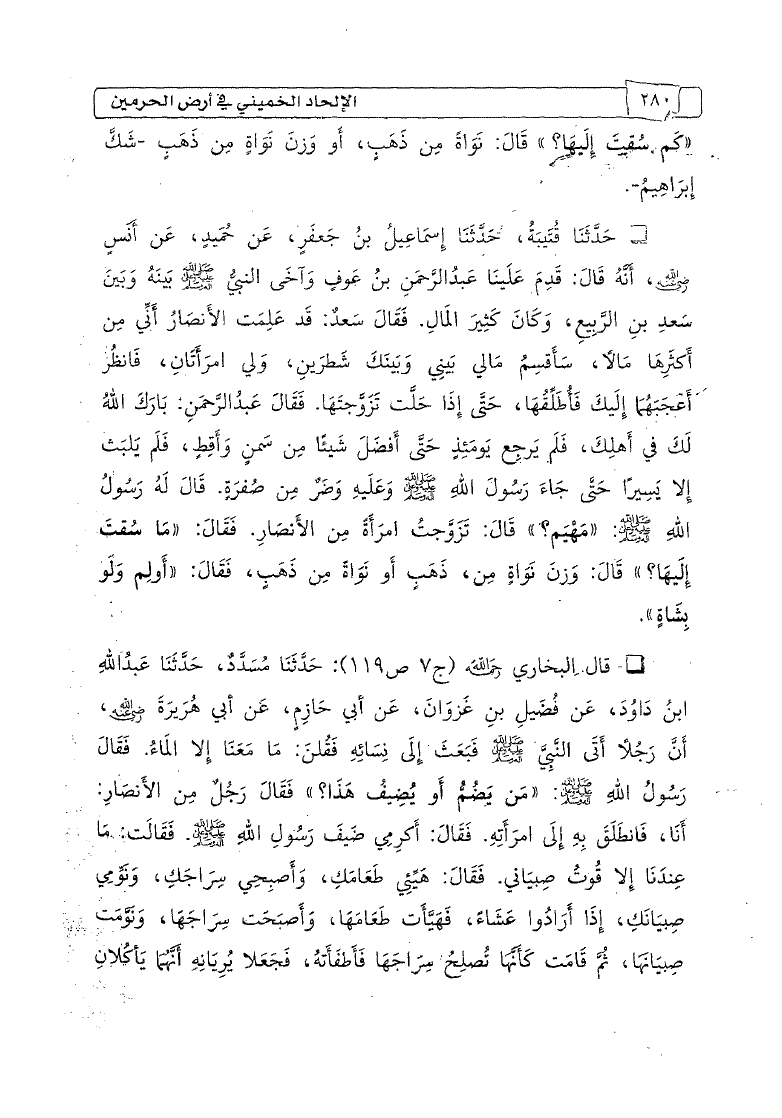 ٢٨٠ الإلحاد الخميني في أرض الحرمين
«كَم سُقتَ إِلَيهَا؟» قَالَ: نَوَاةً مِن ذَهَبٍ، أَو وَزنَ نَوَاةٍ مِن ذَهَبٍ -شَكَّ
إِبرَاهِيمُ-.
❑ حَدَّثَنَا قُتَيبَةُ، حَدَّثَنَا إِسمَاعِيلُ بنُ جَعفَرٍ، عَن حُمَيدٍ، عَن أَنَسٍ
رضي الله عنه، أَنَّهُ قَالَ: قَدِمَ عَلَينَا عَبدُالرَّحمَنِ بنُ عَوفٍ وَآخَى النبيُّ ﷺ بَينَهُ وَبَينَ
سَعدِ بنِ الرَّبِيعِ، وَكَانَ كَثِيرَ المَالِ. فَقَالَ سَعدٌ: قَد عَلِمَت الأَنصَارُ أَنِّي مِن
أَكثَرِهَا مَالاً، سَأَقسِمُ مَالي بَينِي وَبَينَكَ شَطرَينِ، وَلي امرَأَتَانِ، فَانظُر
أَعجَبَهُمَا إِلَيكَ فَأُطَلِّقُهَا، حَتَّى إِذَا حَلَّت تَزَوَّجتَهَا. فَقَالَ عَبدُالرَّحمَنِ: بَارَكَ اللهُ
لَكَ في أَهلِكَ، فَلَم يَرجِع يَومَئِذٍ حَتَّى أَفضَلَ شَيئًا مِن سَمنٍ وَأَقِطٍ، فَلَم يَلبَث
إِلا يَسِيرًا حَتَّى جَاءَ رَسُولَ اللهِ ﷺ وَعَلَيهِ وَضَرٌ مِن صُفرَةٍ. قَالَ لَهُ رَسُولُ
اللهِ ﷺ: «مَهْيَم؟» قَالَ: تَزَوَّجتُ امرَأَةً مِن الأَنصَارِ. فَقَالَ: «مَا سُقتَ
إِلَيهَا؟» قَالَ: وَزنَ نَوَاةٍ مِن، ذَهَبٍ أَو نَوَاةً مِن ذَهَبٍ، فَقَالَ: «أَولِم وَلَو
بِشَاةٍ».
❑ قال البخاري رحمه الله (ج٧ ص١١٩): حَدَّثَنَا مُسَدَّدٌ، حَدَّثَنَا عَبدُاللهِ
ابنُ دَاوُدَ، عَن فُضَيلِ بنِ غَزوَانَ، عَن أَبي حَازِمٍ، عَن أَبي هُرَيرَةَ رضي الله عنه،
أَنَّ رَجُلاً أَتَى النَّبِيَّ ﷺ فَبَعَثَ إِلَى نِسَائِهِ فَقُلنَ: مَا مَعَنَا إِلا المَاءُ. فَقَالَ
رَسُولُ اللهِ ﷺ: «مَن يَضُمُّ أَو يُضِيفُ هَذَا؟» فَقَالَ رَجُلٌ مِن الأَنصَارِ:
أَنَا، فَانطَلَقَ بِهِ إِلَى امرَأَتِهِ. فَقَالَ: أَكرِمِي ضَيفَ رَسُولِ اللهِ ﷺ. فَقَالَت: مَا
عِندَنَا إِلا قُوتُ صِبيَاني. فَقَالَ: هَيِّئِي طَعَامَكِ، وَأَصبِحِي سِرَاجَكِ، وَنَوِّمِي
صِبيَانَكِ، إِذَا أَرَادُوا عَشَاءً، فَهَيَّأَت طَعَامَهَا، وَأَصبَحَت سِرَاجَهَا، وَنَوَّمَت
صِبيَانَهَا، ثُمَّ قَامَت كَأَنَّهَا تُصلِحُ سِرَاجَهَا فَأَطفَأَتهُ، فَجَعَلا يُرِيَانِهِ أَنَّهُمَا يَأكُلانِ